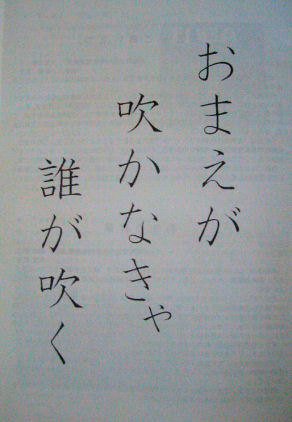 おまえが
吹かなきゃ
誰が吹く